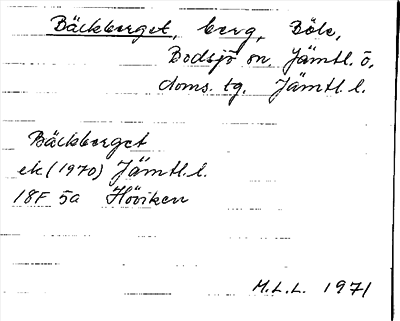 Bäckberget, berg, Böle,
Bodsjö sn, Jämtl. ö.
doms. tg. Jämtl. l.
Bäckberget
ek (1970) Jämtl. l.
18F 5a Höviken
M.L.L. 1971